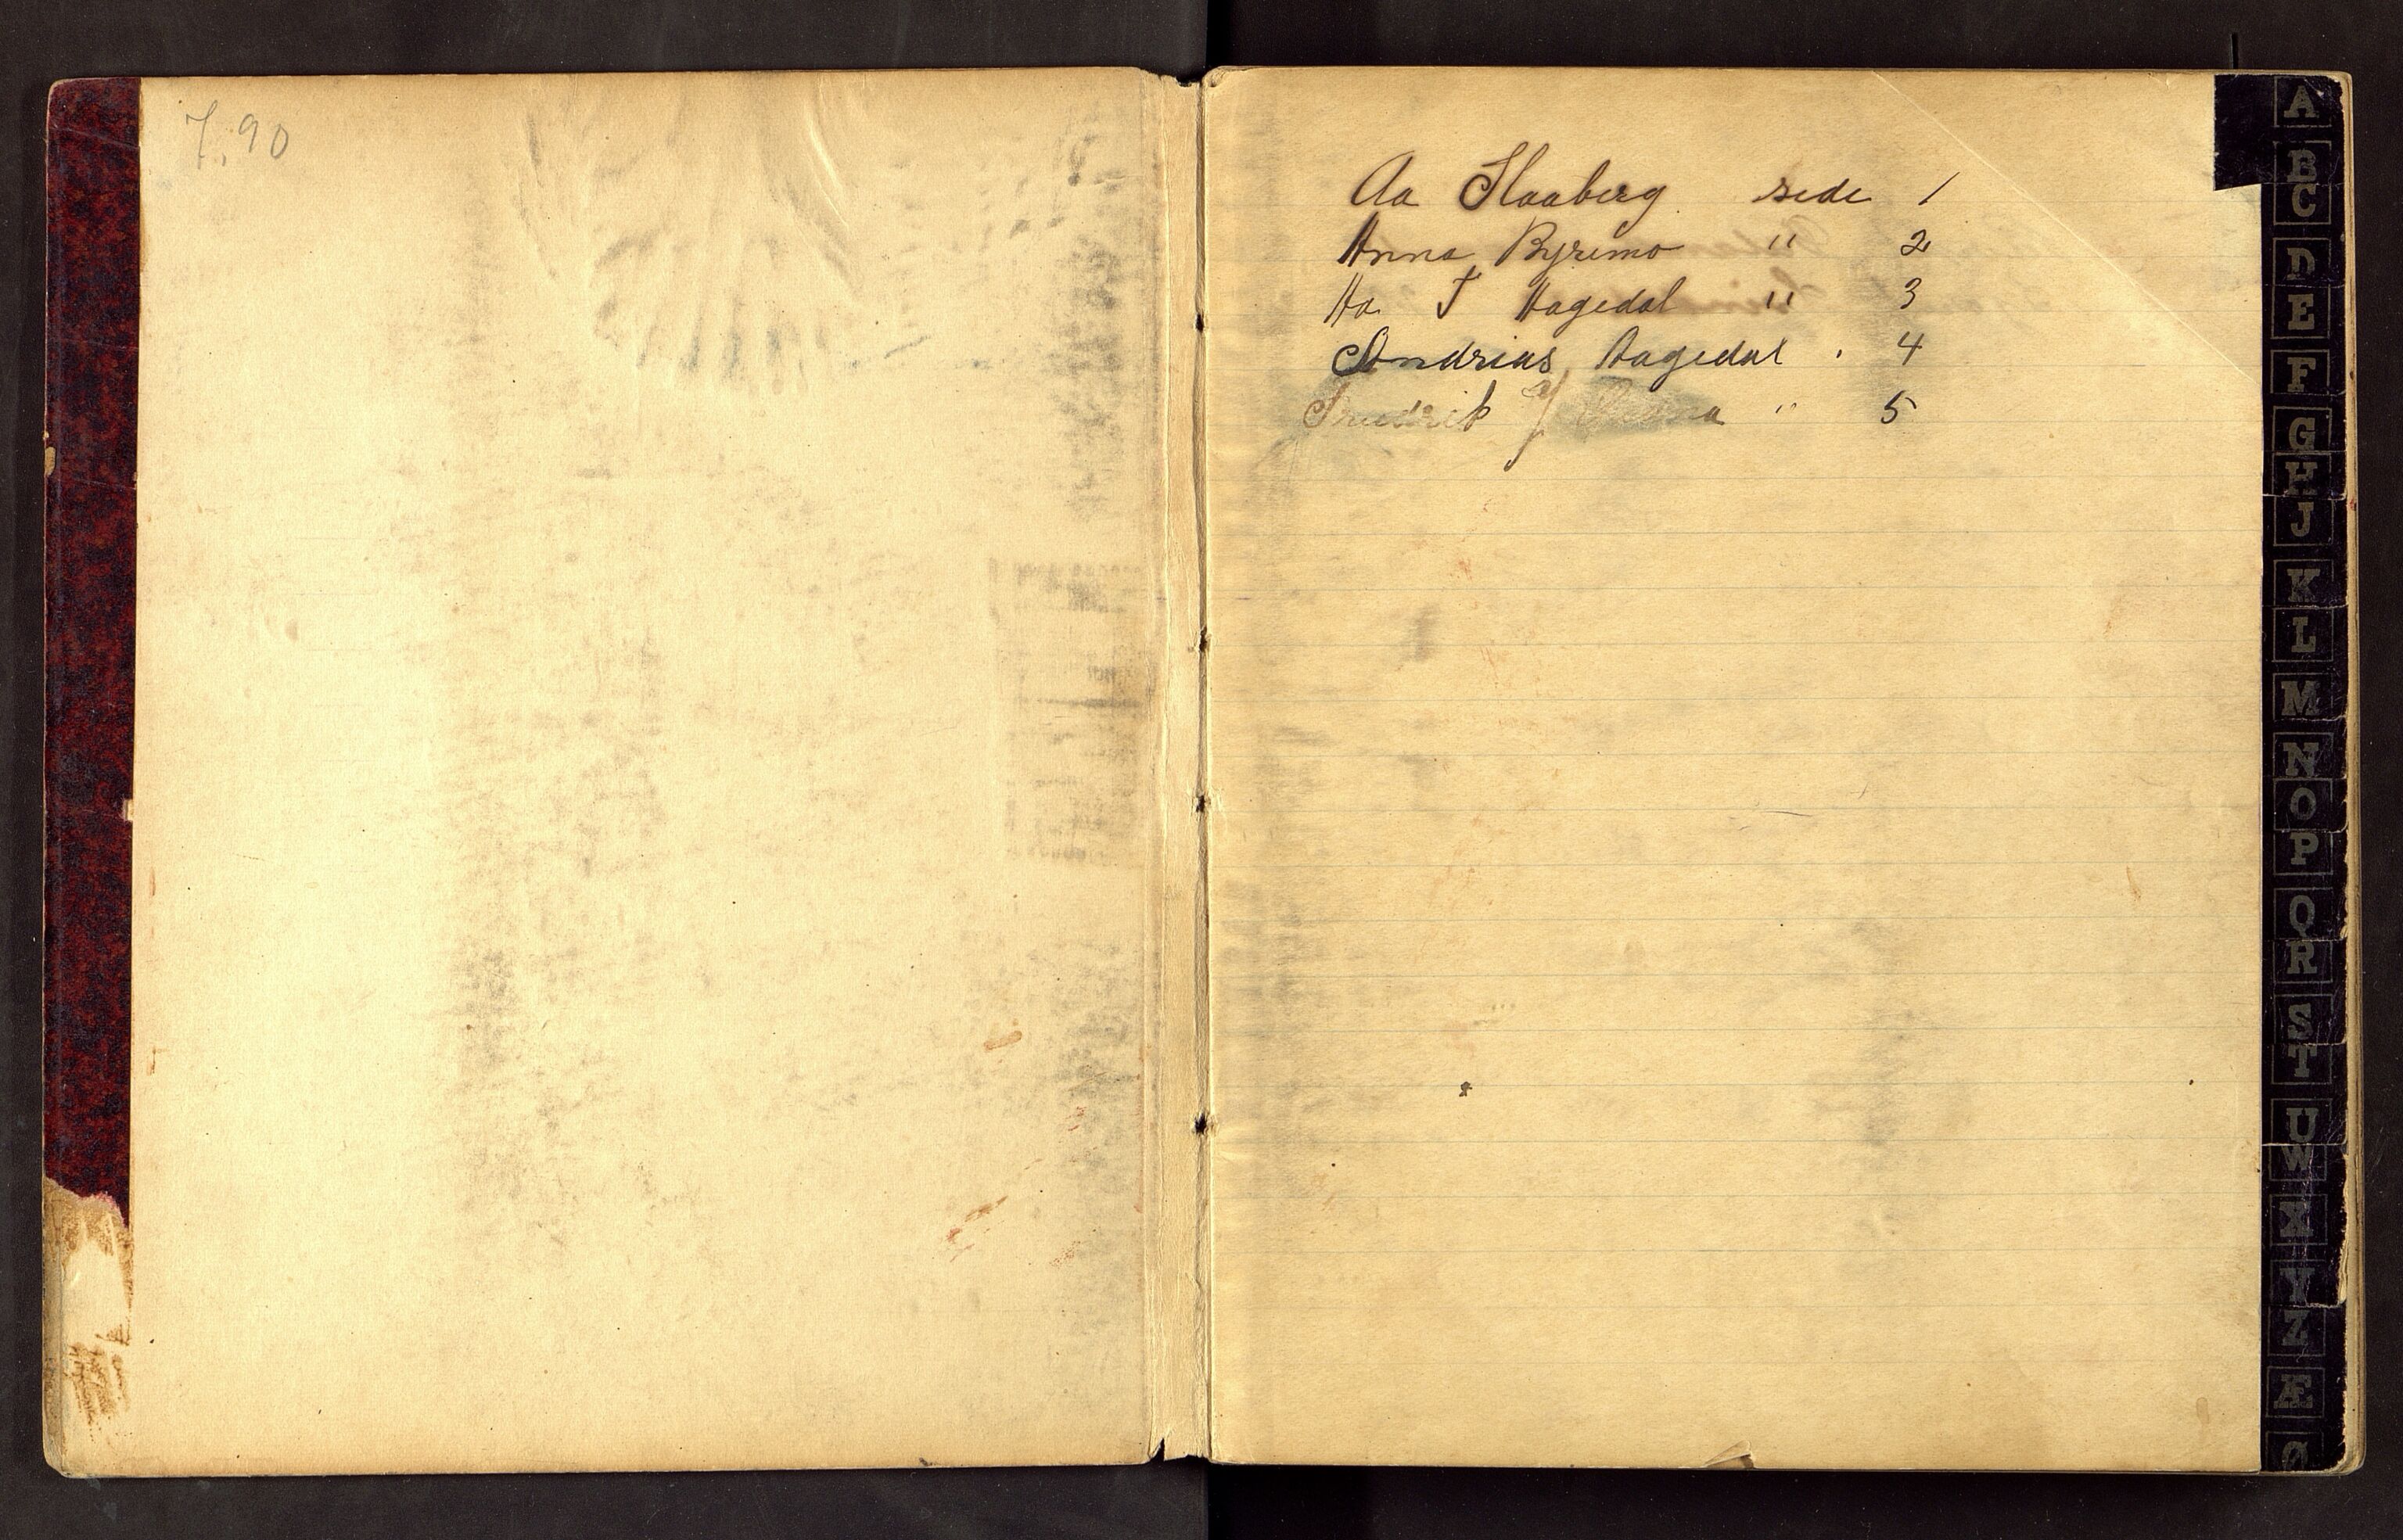 7.90
Aa Slaaberg side 1
Anna Byremo " 2
Aa T Aagedal " 3
Andrias Aagedal . 4
Fredrik " 5
A
B
C
D
E
F
G
H
J
K
L
M
N
O
P
Q
R
S
T
U
W
X
Y
Z
Æ
Ø